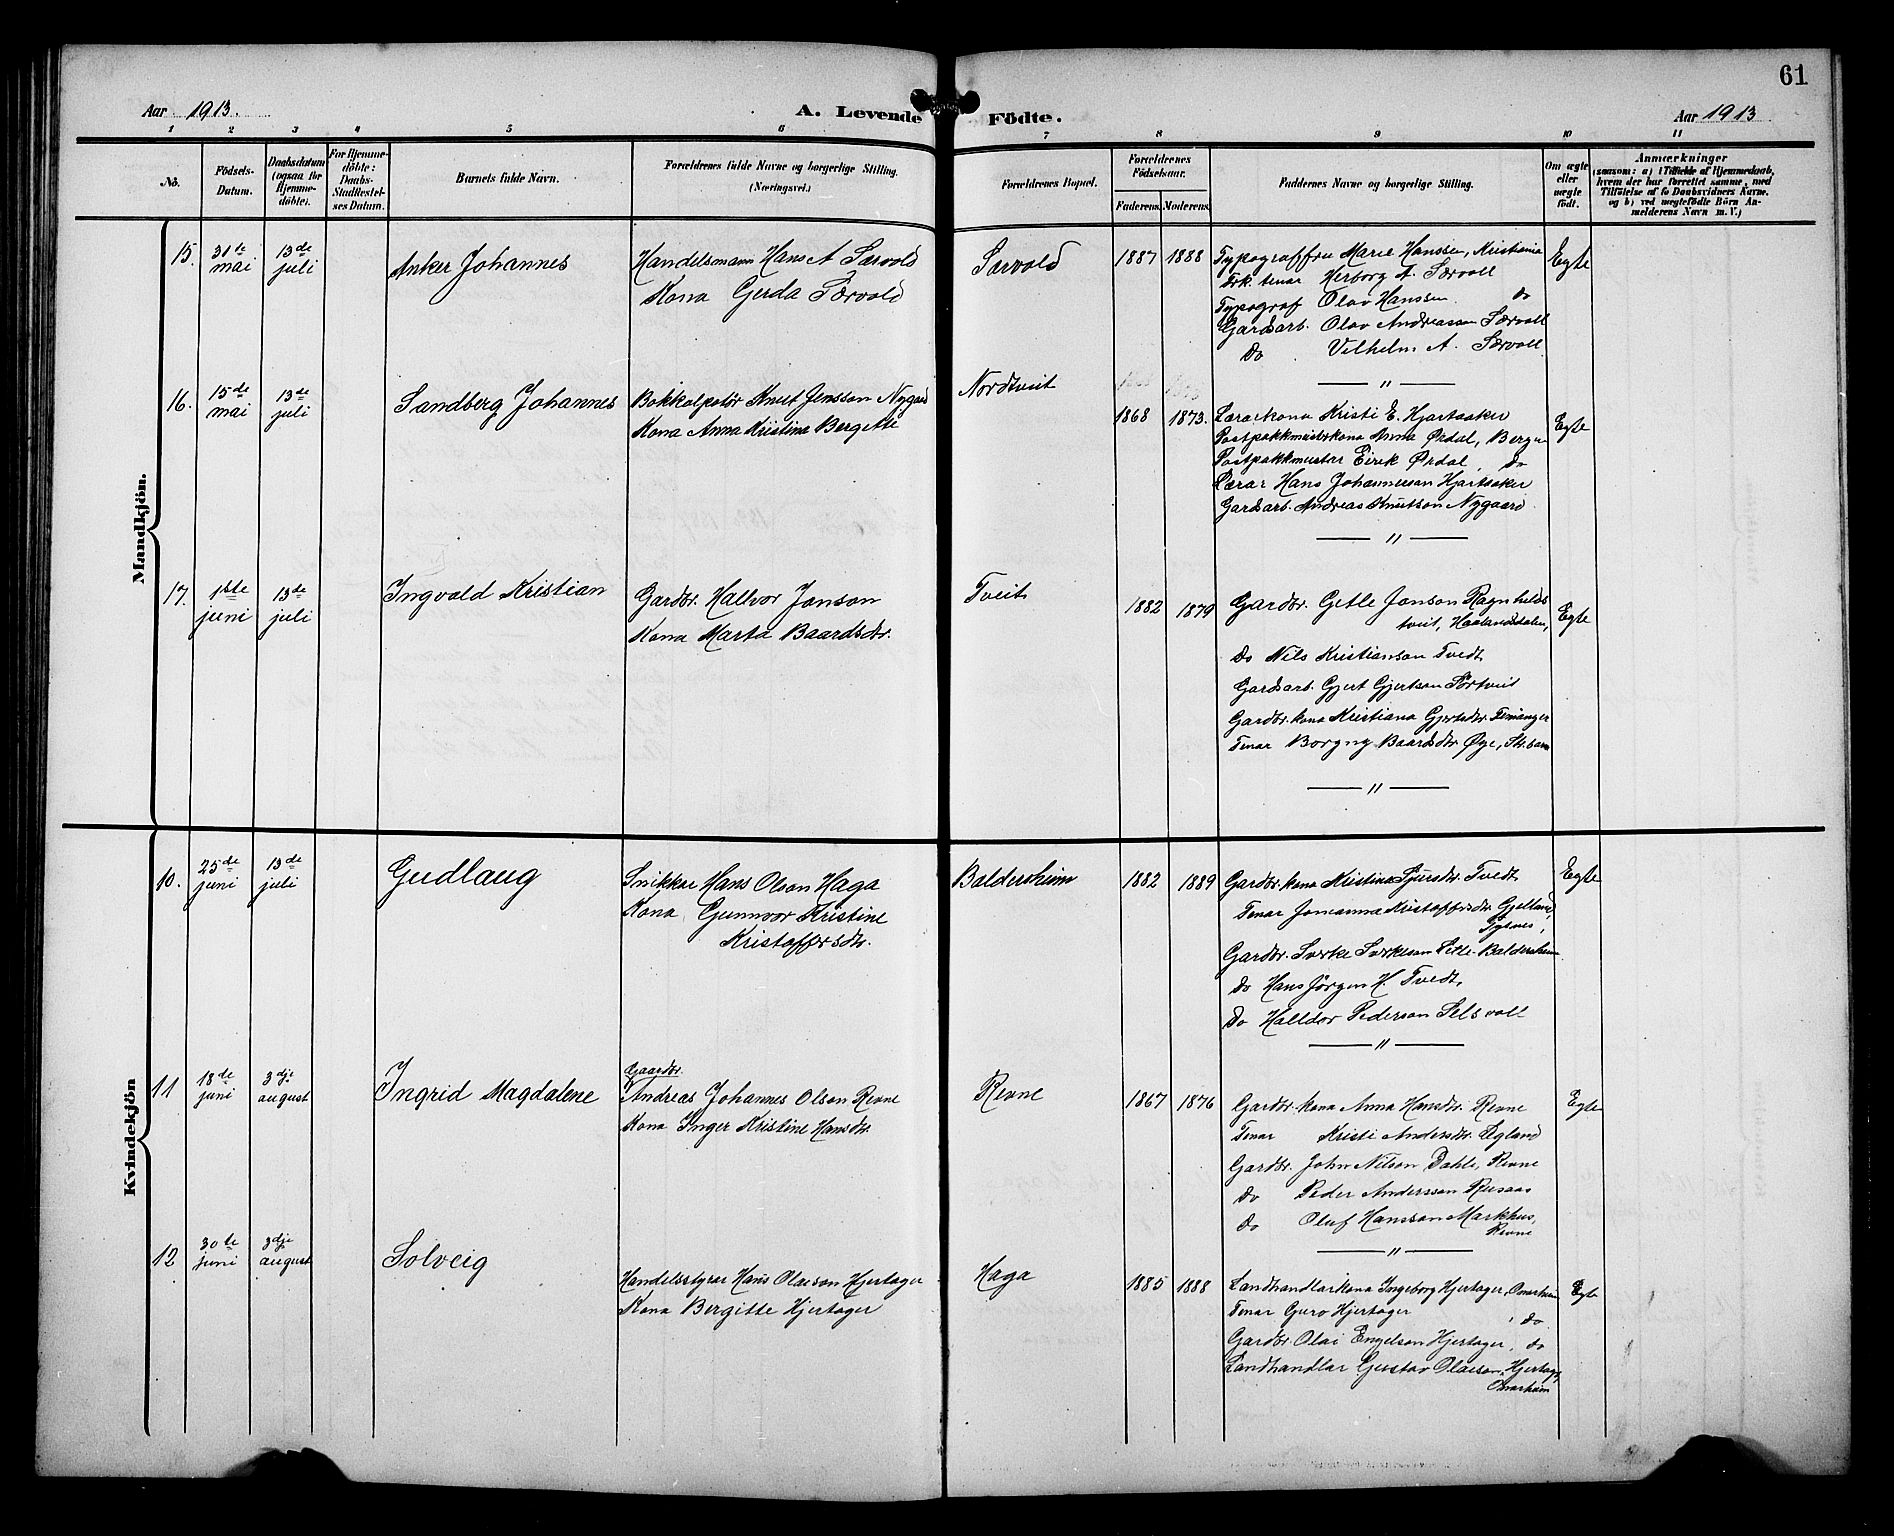 61
Aar 1913.
A. Levende Födte.
Aar 1913
1 2 3 4 5 6 7 8 9 10 11
No.
Födsels-Datum.
Daabsdatum (ogsaa for Hjemme-döbte).
For Hjemme-döbte: Daabs-Stadfæstel-ses Datum.
Barnets fulde Navn.
Forældrenes fulde Navne og borgerlige Stilling. (Næringsvei.)
Forældrenes Bopæl.
Forældrenes Födselsaar.
Faderens. Moderens.
Faddernes Navne og borgerlige Stilling.
Om ægte eller uægte födt.
Anmærkninger
(saasom: a) i Tilfælde af Hjemmedaab,
hvem der har forrettet samme, med
Tilföielse af to Daabsvidners Navne,
og b) ved uægtefödte Börn An-
melderens Navn m. V.)
Mandkjön.
15. 31te mai 13de juli
Anker Johannes
Handelsmann Hans A Særvold
Kona Gerda Særvold
Særvold
1887 1888
Typograffru Marie Hanssen, Kristiania
Frk. tenar Herborg A. Særvoll
Typograf Olav Hanssen do
Gardsarb. Olav Andreasson Særvoll
Do Vilhelm A. Særvoll
Egte
— " —
16. 15de mai 13de juli
Sandberg Johannes
Bokkolpotör Knut Jensson Nygard
Kona Anna Kristina Bergette
Nordtveit
1868 1873.
Lærarkona Kristi E. Hjartaaker
Postpakkmeisterkona Anna Ørdal, Bergen
Postpakkmeister Eirik Ørdal, do
Lærar Hans Johannesson Hjartaaker
Gardsarb. Andreas Knutson Nygaard
Egte
— " —
17. 1ste juni 13de juli
Ingvald Kristian
Gardbr. Hallvor Jonson
Kona Marta Baardsdtr.
Tveit
1882 1879
Gardbr. Getle Jonson Ragnhilds
tveit, Haalandsdalen,
Do Nils Kristianson Tvedt
Gardsarb. Gjert Gjertson Sörtveit
Gardbr. kona Kristiana Gjertsdtr. Femanger
Tenar Borgny Baardsdtr Øye, Str.barm
Egte
— " —
Kvindekjön
10. 25de juni 13de juli
Gudlaug
Snikkar Hans Olson Haga
Kona Gunnvor Kristine
Kristoffersdtr.
Baldersheim
1882 1889
Gardbr. kona Kristina Sjursdtr. Tvedt
Tenar Johanna Kristoffersdtr. Gjelland,
Tysnes,
Gardbr. Sverke Sverkeson Letle-Baldersheim
do Hans Jörgen H. Tvedt,
Do Halldor Pederson Selsvoll
Egte
— " —
11 18de juni 3dje august
Ingrid Magdalene
Gaardbr.
Andreas Johannes Olson Revne
Kona Inger Kristine Hansdtr.
Revne
1867 1876
Gardbr. kona Anna Hansdtr. Revne
Tenar Kristi Andersdtr. Legland
Gardbr. John Nilson Dahle, Revne
do Peder Andersson Rusaas
do Oluf Hansson Markhus,
Revne
Egte
— " —
12 30te juni 3dje august
Solveig
Handelsstyrar Hans Olaison Hjertager
Kona Bergitte Hjertager
Haga
1885 1888
Landhandlarkona Ingeborg Hjertager, Omarheim
Tenar Guro Hjertager, do
Gardbr. Olai Engelson Hjertager, do
Landhandlar Gustav Olaison Hjertager,
Omarheim
Egte